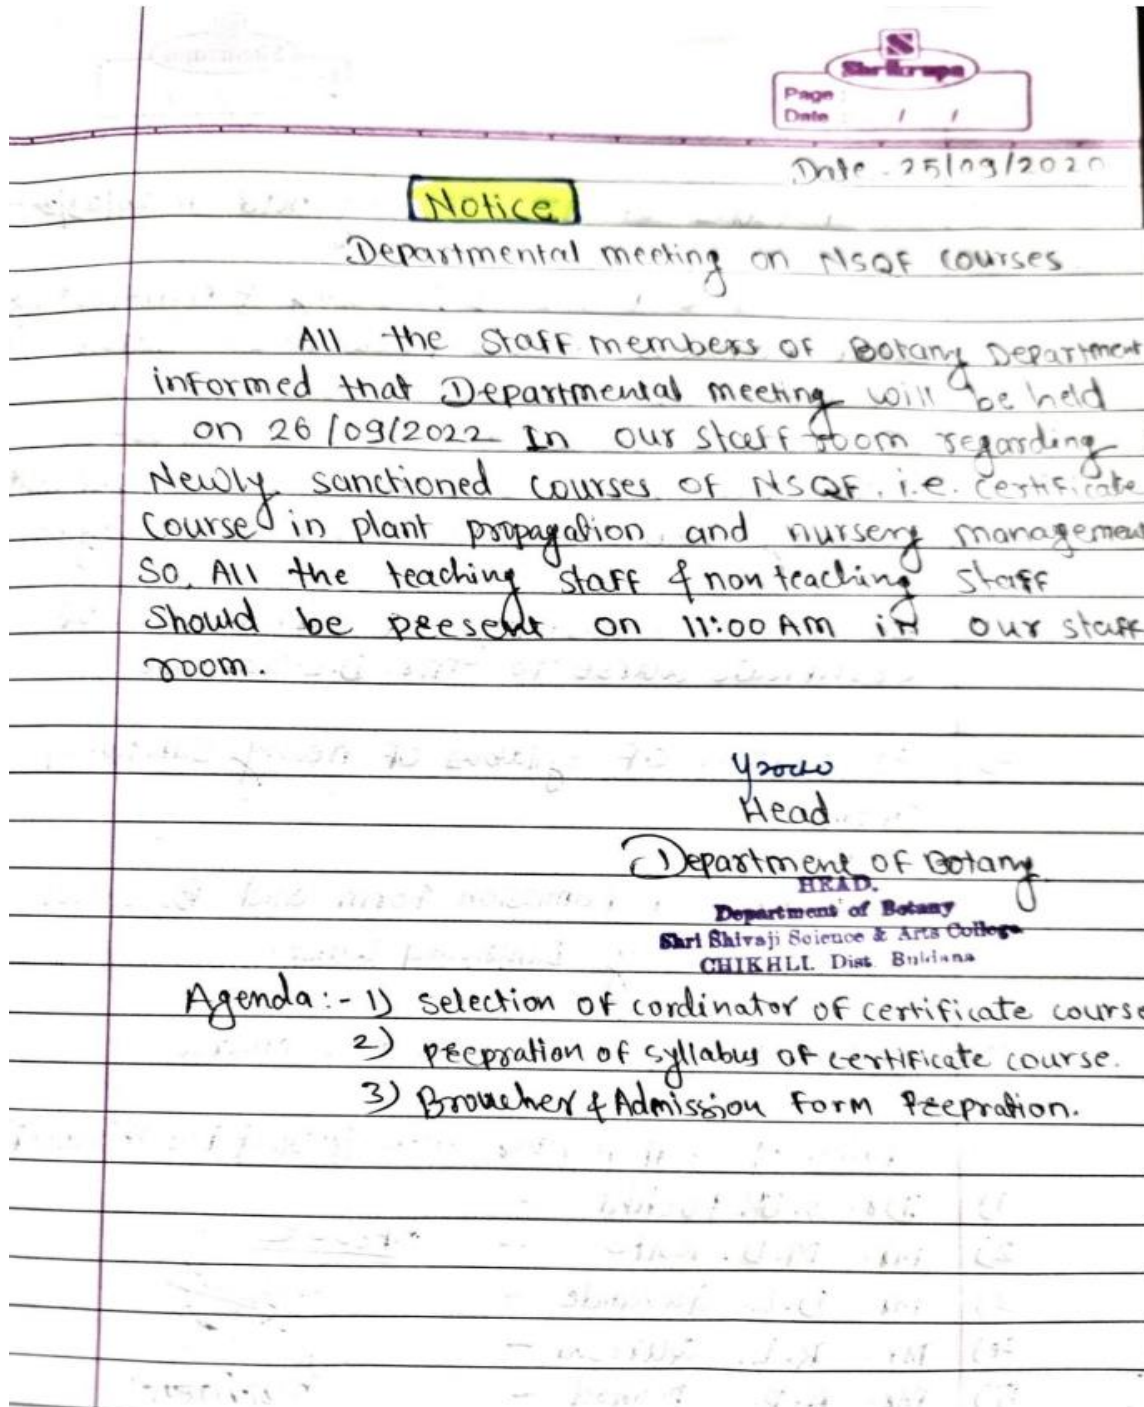 Shrikrupa
Page :
Date : / /
Date - 25/09/2020
Notice
Departmental meeting on NSQF courses
All the staff members of Botany Department
informed that Departmental meeting will be held
on 26/09/2022 In our staff room regarding
Newly sanctioned courses of NSQF. i.e. certificate
course in plant propagation and nursery management
So, All the teaching staff & non teaching staff
should be present on 11:00 AM in our staff
room.
Head
Department of Botany
HEAD.
Department of Botany
Shri Shivaji Science & Arts College
CHIKHLI. Dist. Buldana
Agenda :- 1) selection of cordinator of certificate course
2) prepration of syllabus of certificate course.
3) Broucher & Admission form Prepration.